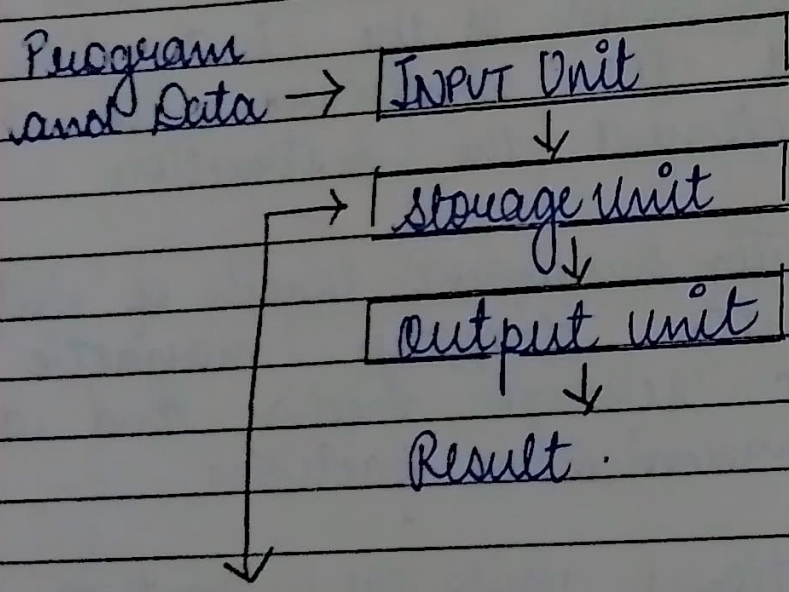 Program
and Data → INPUT Unit
↓
→ Storage Unit
↓
Output unit
↓
Result.